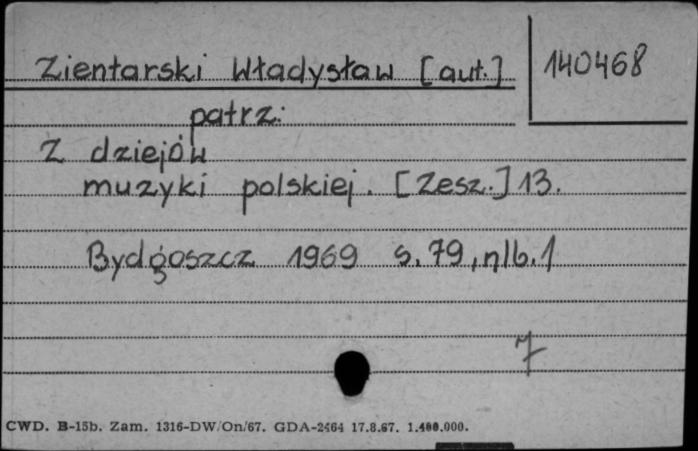 Zientarski Władysław [aut.] 140468
patrz:
Z dziejów
muzyki polskiej. [Zesz.] 13.
Bydgoszcz 1969 s. 79, nlb. 1
7
CWD. B-15b. Zam. 1316-DW/On/67. GDA-2464 17.8.67. 1.400.000.